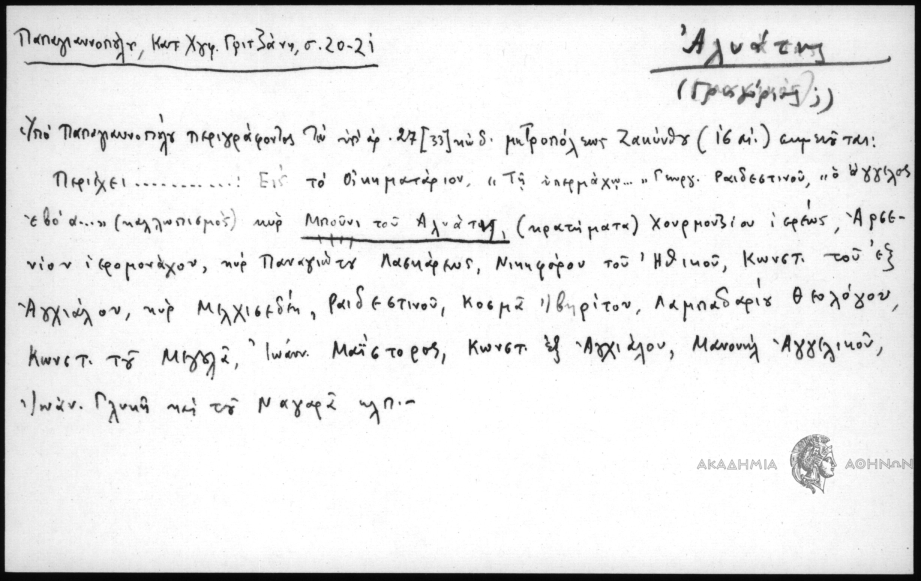 Παπαγιαννοπούλου, Κατ. Χγφ. Γριτζάνη, σ. 20-21
Ἀλυάτης
(Γρηγόριος;)
Ὑπὸ Παπαγιαννοπούλου περιγράφοντος τὸν ὑπ' ἀρ. 27[33] κώδ. μητροπόλεως Ζακύνθου (ις αἰ.) σημειοῦται:
Περιέχει ..........: Εἰς τὸ Οἰκηματάριον, "Τῇ ὑπερμάχῳ..." Γεωργ. Ραιδεστινοῦ, "ὁ ἄγγελος
ἐβόα..." (καλλωπισμὸς) κὺρ Μπούνι τοῦ Ἀλυάτη, (κρατήματα) Χουρμουζίου ἱερέως, Ἀρσε-
νίου ἱερομονάχου, κὺρ Παναγιώτου Λασκάρεως, Νικηφόρου τοῦ Ἠθικοῦ, Κωνστ. τοῦ ἐξ
Ἀγχιάλου, κὺρ Μελχισεδέκ, Ραιδεστινοῦ, Κοσμᾶ Ἰβηρίτου, Λαμπαδαρίου Θεολόγου,
Κωνστ. τοῦ Μαγουλᾶ, Ἰωάνν. Μαΐστορος, Κωνστ. ἐξ Ἀγχιάλου, Μανουὴλ Ἀγγελικοῦ,
Ἰωάν. Γλυκῆ καὶ τοῦ Ναγαρᾶ κλπ.-
ΑΚΑΔΗΜΙΑ ΑΘΗΝΩΝ